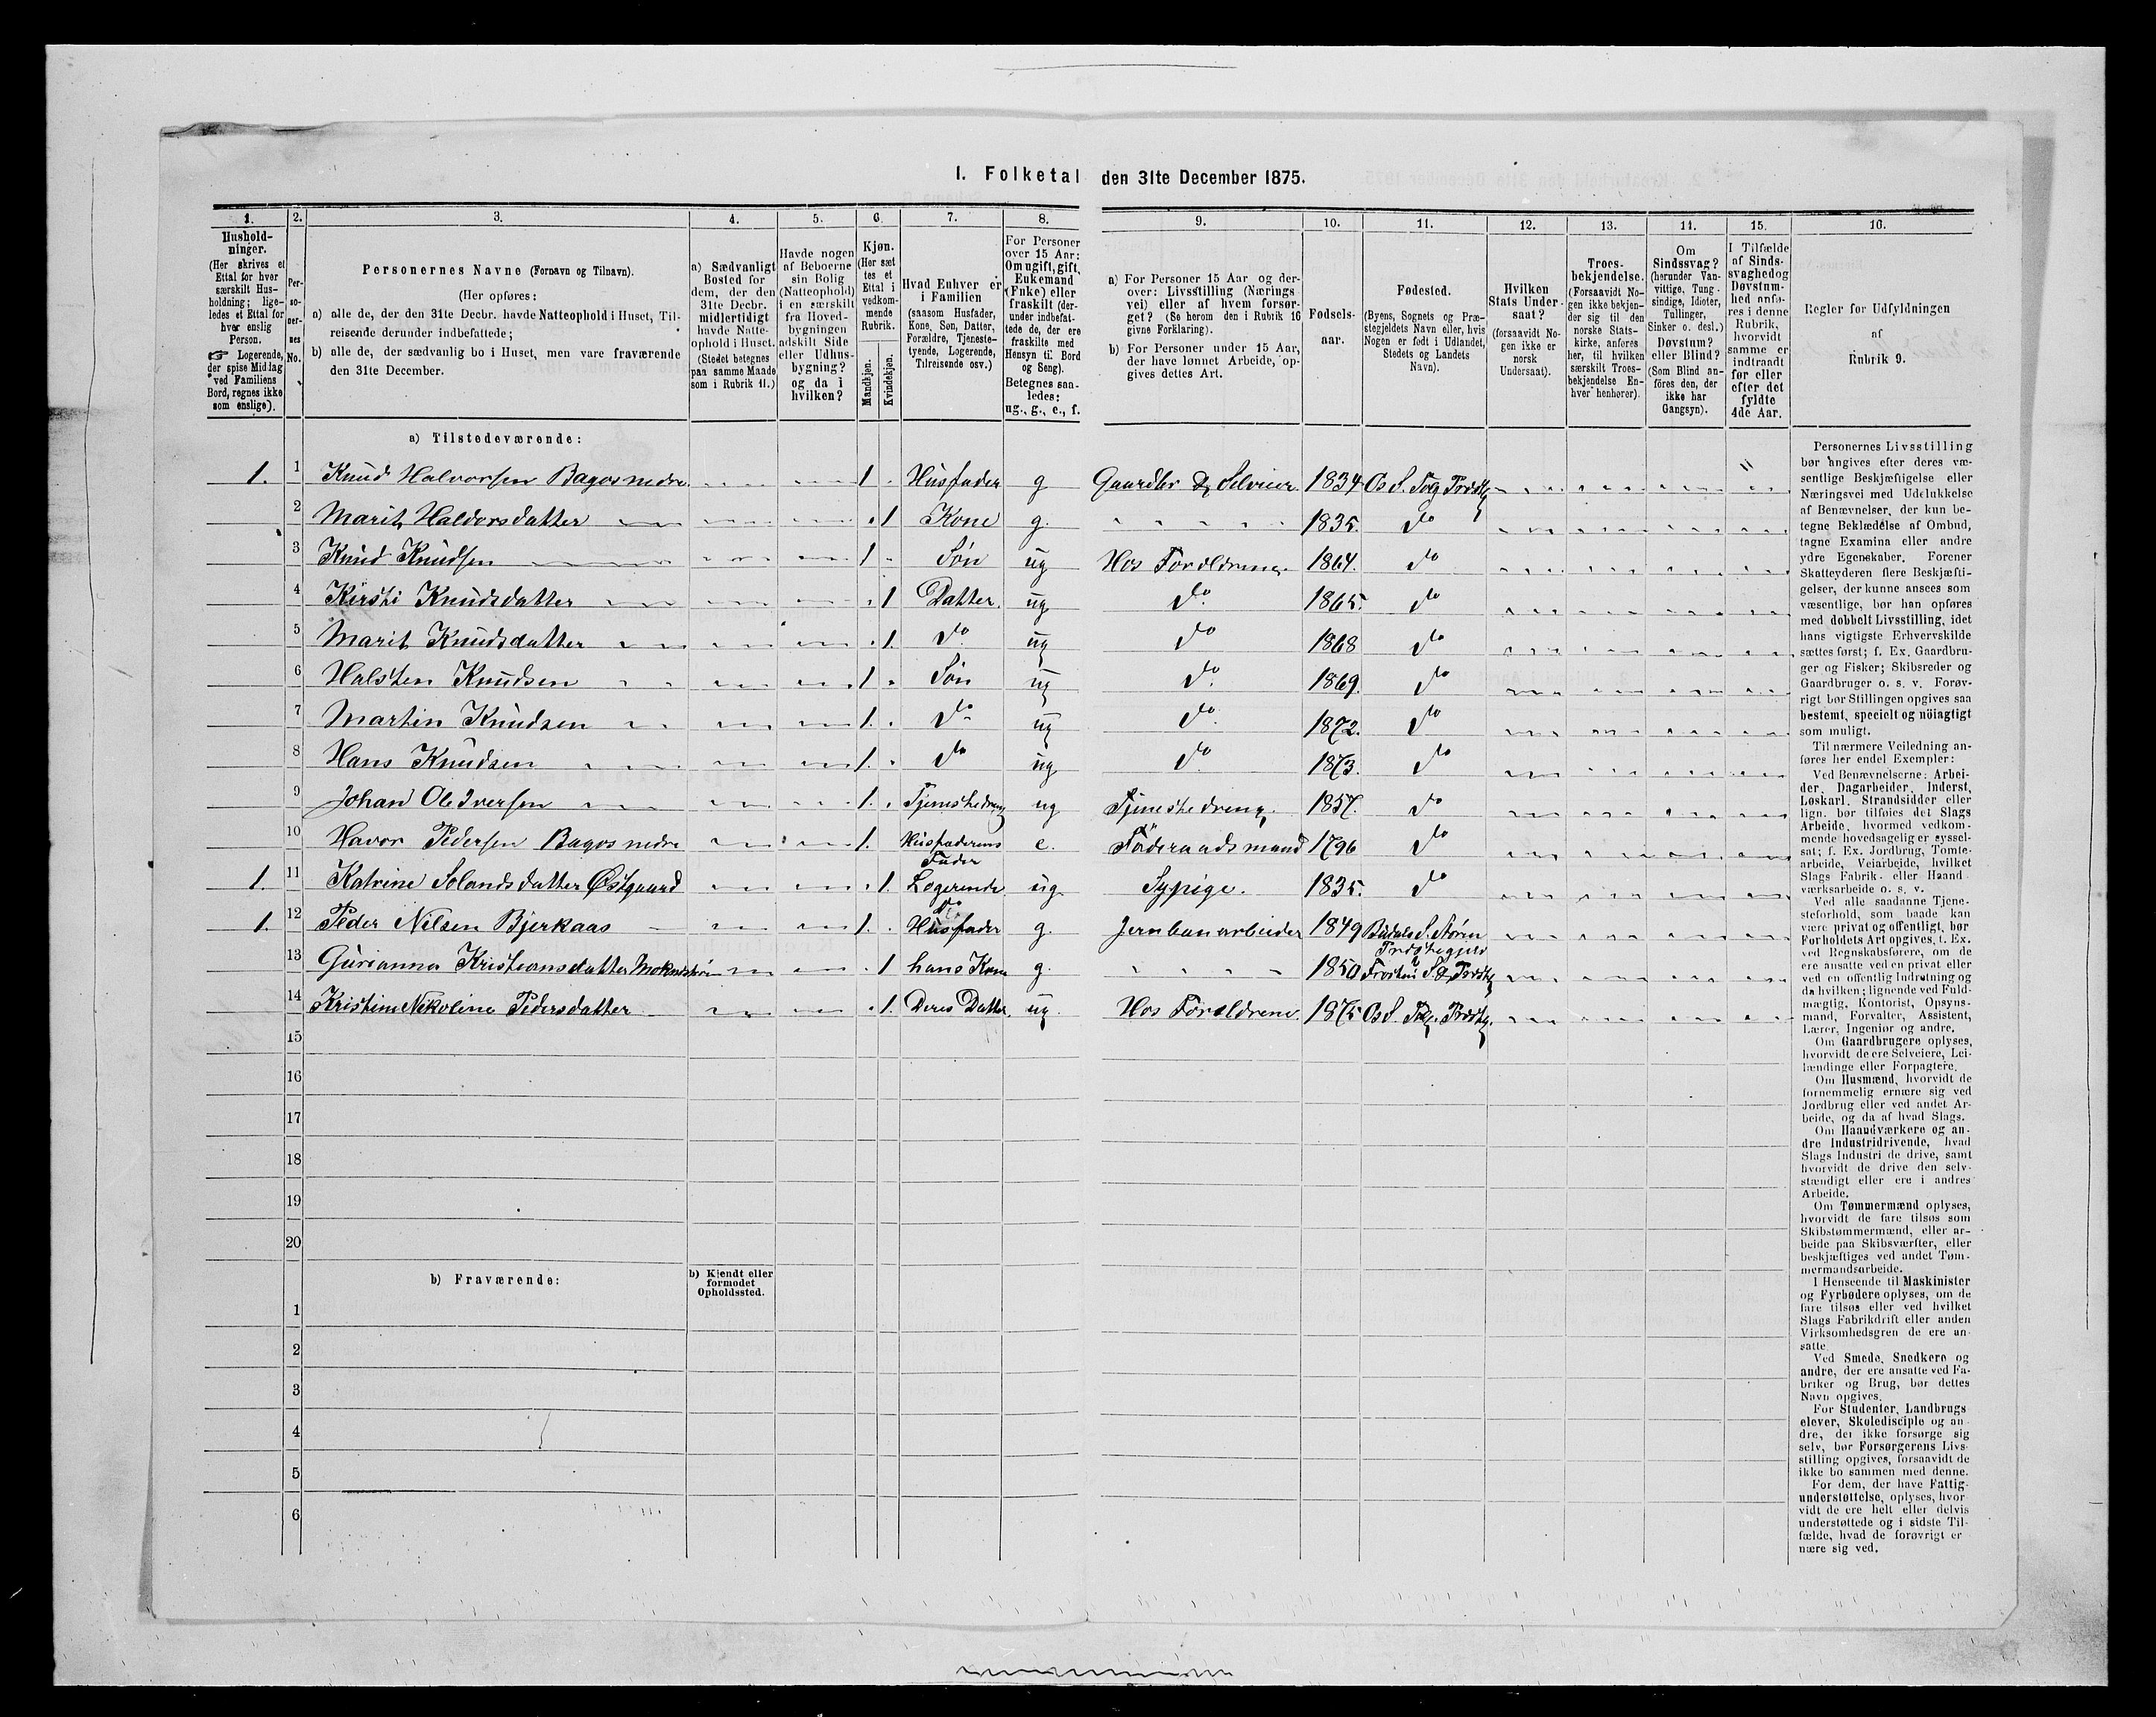 1. Folketal den 31te December 1875.
1. 2. 3. 4. 5. 6. 7. 8. 9. 10. 11. 12. 13. 14. 15. 16.
Hushold-
ninger.
(Her skrives et
Ettal for hver
særskilt Hus-
holdning; lige-
ledes et Ettal for
hver enslig
Person.
☞ Logerende,
der spise Middag
ved Familiens
Bord, regnes ikke
som enslige).
Per-
so-
ner-
nes
No.
Personernes Navne (Fornavn og Tilnavn).
(Her opføres:
a) alle de, der den 31te Decbr. havde Natteophold i Huset, Til-
reisende derunder indbefattede;
b) alle de, der sædvanlig bo i Huset, men vare fraværende
den 31te December.
a) Sædvanligt
Bosted for
dem, der den
31te Decbr.
midlertidigt
havde Natte-
ophold i Huset.
(Stedet betegnes
paa samme Maade
som i Rubrik 11.)
Havde nogen
af Beboerne
sin Bolig
(Natteophold)
i en særskilt
fra Hoved-
bygningen
adskilt Side
eller Udhus-
bygning?
og da i
hvilken?
Kjøn.
(Her sæt
tes et
Ettal i
vedkom-
mende
Rubrik.
Mandkjøn.
Kvindekjøn.
Hvad Enhver er
i Familien
(saasom Husfader,
Kone, Søn, Datter,
Forældre, Tjeneste-
tyende, Logerende,
Tilreisende osv.)
For Personer
over 15 Aar:
Om ugift, gift,
Enkemand
(Enke) eller
fraskilt (der-
under indbefat-
tede de, der ere
fraskilte med
Hensyn til Bord
og Seng).
Betegnes saa-
ledes:
ug., g., e., f.
a) For Personer 15 Aar og der-
over: Livsstilling (Nærings-
vei) eller af hvem forsør-
get? (Se herom den i Rubrik 16
givne Forklaring).
b) For Personer under 15 Aar,
der have lønnet Arbeide, op-
gives dettes Art.
Fødsels-
aar.
Fødested.
(Byens, Sognets og Præ-
stegjeldets Navn eller, hvis
Nogen er født i Udlandet,
Stedets og Landets
Navn).
Hvilken
Stats Under-
saat?
(forsaavidt No-
gen ikke er
norsk
Undersaat).
Troes-
bekjendelse.
(Forsaavidt No-
gen ikke bekjen-
der sig til den
norske Stats-
kirke, anføres
her, til hvilken
særskilt Troes-
bekjendelse En-
hver henhører).
Om
Sindssvag?
(herunder Van-
vittige, Tung-
sindige, Idioter,
Tullinger,
Sinker o. desl.)
Døvstum?
eller Blind?
(Som Blind an-
føres den, der
ikke har
Gangsyn).
I Tilfælde
af Sinds-
svaghed og
Døvstum-
hed anfø-
res i denne
Rubrik,
hvorvidt
samme er
indtraadt
før eller
efter det
fyldte
4de Aar.
Regler for Udfyldningen
af
Rubrik 9.
a) Tilstedeværende:
1. 1 Knud Halvorsen Bagos nedre 1 Husfader g Gaardbr & Selveier 1834 Os S. Sog Prdstg
2 Marit Haldorsdatter 1 Kone g. 1835. do
3 Knud Knudsen 1 Søn ug Hos Forældrene 1864. do
4 Kirsti Knudsdatter 1 Datter. ug do 1865. do
5 Marit Knudsdatter 1. do ug do 1868 do
6 Halsten Knudsen 1 Søn ug do 1869. do
7 Martin Knudsen 1. do ug do 1872. do
8 Hans Knudsen 1. do ug do 1873. do
9 Johan Ole Iversen 1. Tjenestedreng ug Tjenestedreng 1857. do
10 Havor Pedersen Bagos nedre 1. Husfaderens Fader e. Föderaadsmand 1796 do
1. 11 Katrine Solandsdatter Østgaard 1. Logerende ug Sypige. 1835. do
1. 12 Peder Nilsen Bjerkaas 1. do Husfader g. Jernbanarbeider 1849 Budals S. Støren Prdstegjeld
13 Gurianna Kristiansdatter 1 hans Kone g. 1850 Frosten S. & Prdstg
14 Kristine Nikoline Pedersdatter 1. Deres Datter. ug. Hos Forældrene. 1875 Os S. Prdstg.
15
16
17
18
19
20
b) Fraværende:
b) Kjendt eller
formodet
Opholdssted.
1
2
3
4
5
6
Personernes Livsstilling
bør angives efter deres væ-
sentlige Beskjæftigelse eller
Næringsvei med Udelukkelse
af Benævnelser, der kun be-
tegne Beklædelse af Ombud,
tagne Examina eller andre
ydre Egenskaber. Forener
Skatteyderen flere Beskjæfti-
gelser, der kunne ansees som
væsentlige, bør han opføres
med dobbelt Livsstilling, idet
hans vigtigste Erhvervskilde
sættes først; f. Ex. Gaardbru-
ger og Fisker; Skibsreder og
Gaardbruger o. s. v. Forøv-
rigt bør Stillingen opgives saa
bestemt, specielt og nöiagtigt
som muligt.
Til nærmere Veiledning an-
føres her endel Exempler:
Ved Benævnelserne: Arbei-
der, Dagarbeider, Inderst,
Løskarl, Strandsidder eller
lign. bør tilføies det Slags
Arbeide, hvormed vedkom-
mende hovedsagelig er syssel-
sat; f. Ex. Jordbrug, Tomte-
arbeide, Veiarbeide, hvilket
Slags Fabrik- eller Haand-
værksarbeide o. s. v.
Ved alle saadanne Tjene-
steforhold, som baade kan
være privat og offentligt, bør
Forholdets Art opgives, f. Ex.
ved Regnskabsførere, om de
ere ansatte ved en privat eller
ved en offentlig Indretning og
da hvilken; lignende ved Fuld-
mægtig, Kontorist, Opsyns-
mand, Forvalter, Assistent,
Lærer, Ingeniør og andre.
Om Gaardbrugere oplyses,
hvorvidt de ere Selveiere, Lei-
lændinge eller Forpagtere.
Om Husmænd, hvorvidt de
fornemmelig ernære sig ved
Jordbrug eller ved andet Ar-
beide, og da af hvad Slags.
Om Haandværkere og an-
dre Industridrivende, hvad
Slags Industri de drive, samt
hvorvidt de drive den selv-
stændigt eller ere i andres
Arbeide.
Om Tømmermænd oplyses,
hvorvidt de fare tilsøs som
Skibstømmermænd, eller ar-
beide paa Skibsværfter, eller
beskjæftiges ved andet Tøm-
mermandsarbeide.
I Henseende til Maskinister
og Fyrbødere oplyses, om de
fare tilsøs eller ved hvilket
Slags Fabrikdrift eller anden
Virksomhedsgren de ere an-
satte.
Ved Smede, Snedkere og
andre, der ere ansatte ved Fa-
briker og Brug, bør dettes
Navn opgives.
For Studenter, Landbrugs-
elever, Skoledisciple og an-
dre, der ikke forsørge sig
selv, bør Forsørgerens Livs-
stilling opgives, forsaavidt de
ikke bo sammen med denne.
For dem, der have Fattig-
understøttelse, oplyses, hvor-
vidt de ere helt eller delvis
understøttede og i sidste Til-
fælde, hvad de forøvrigt er-
nære sig ved.